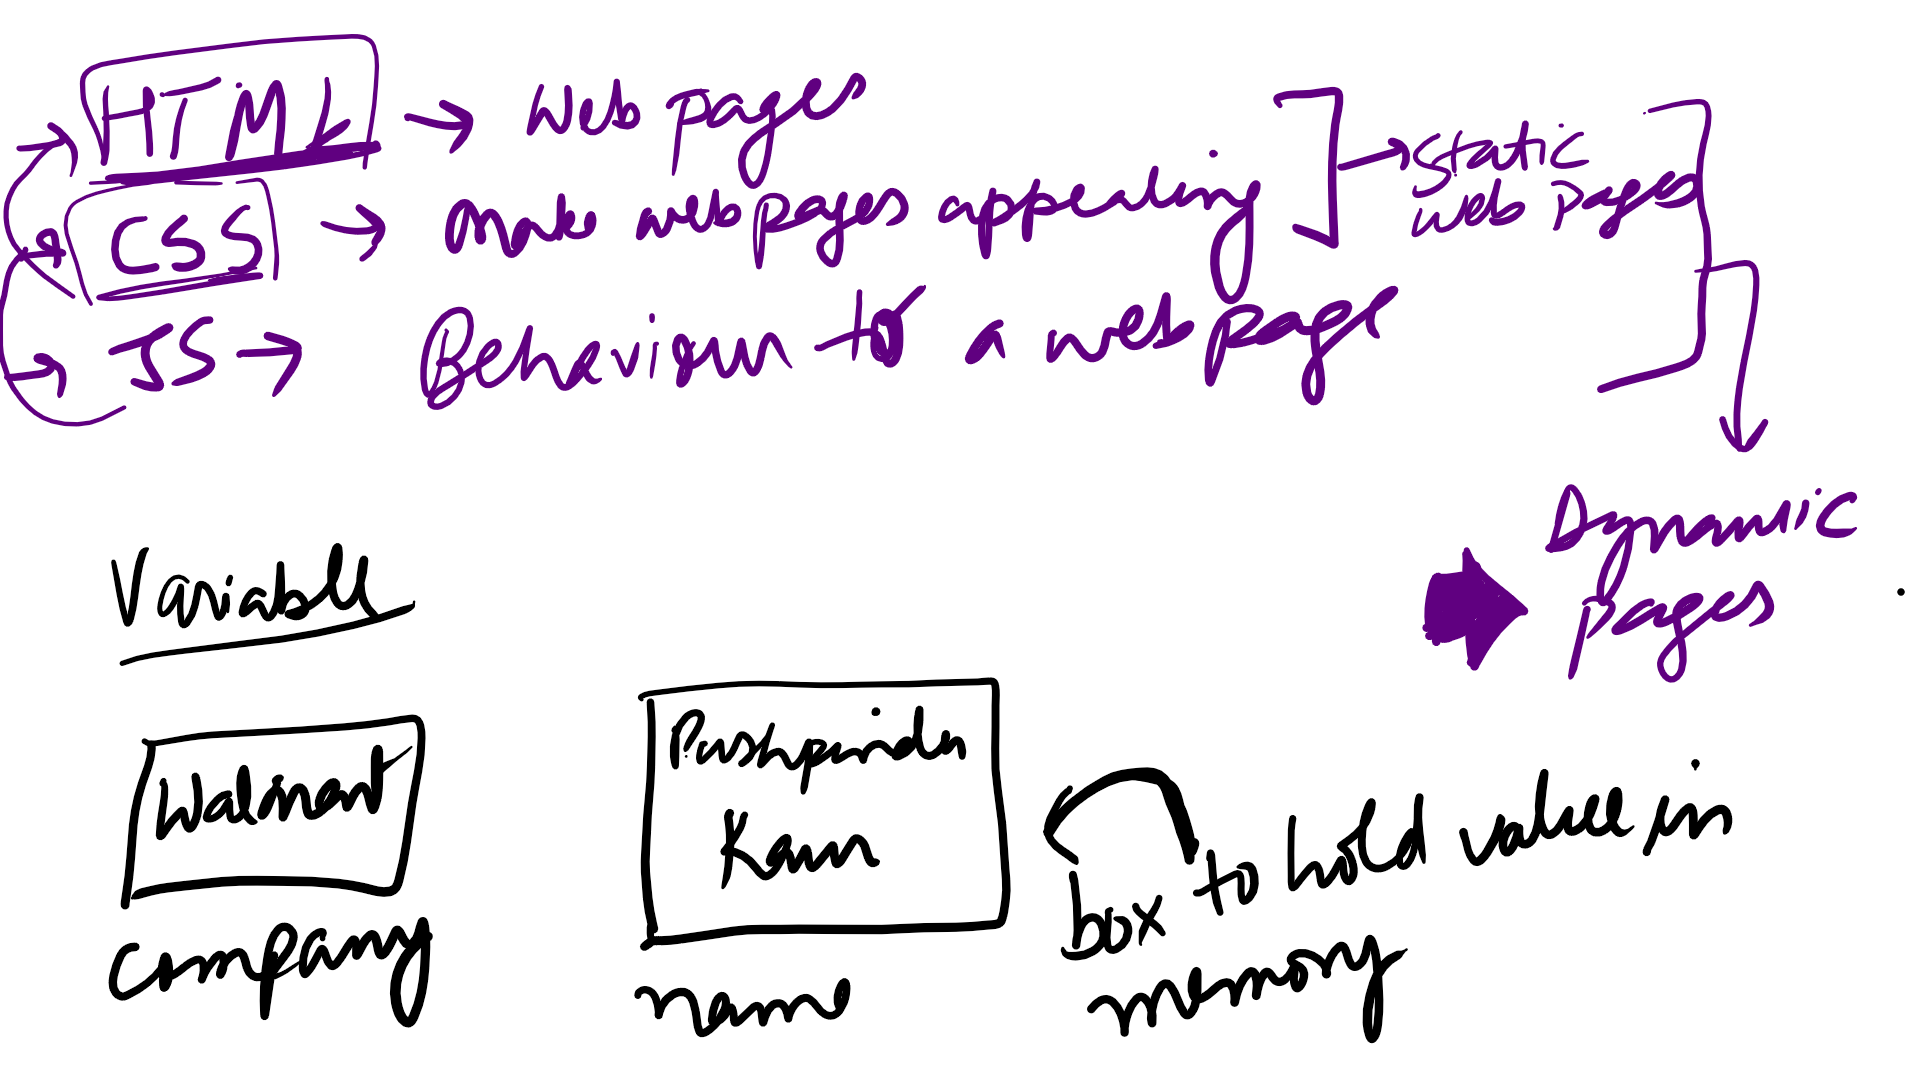 HTML → Web pages
CSS → make webpages appealing
→ Static
web pages
JS → Behaviour to a webpage
Dynamic
pages
Variable
Walmart
company
Pushpinder
Kaur
name
box to hold value in
memory